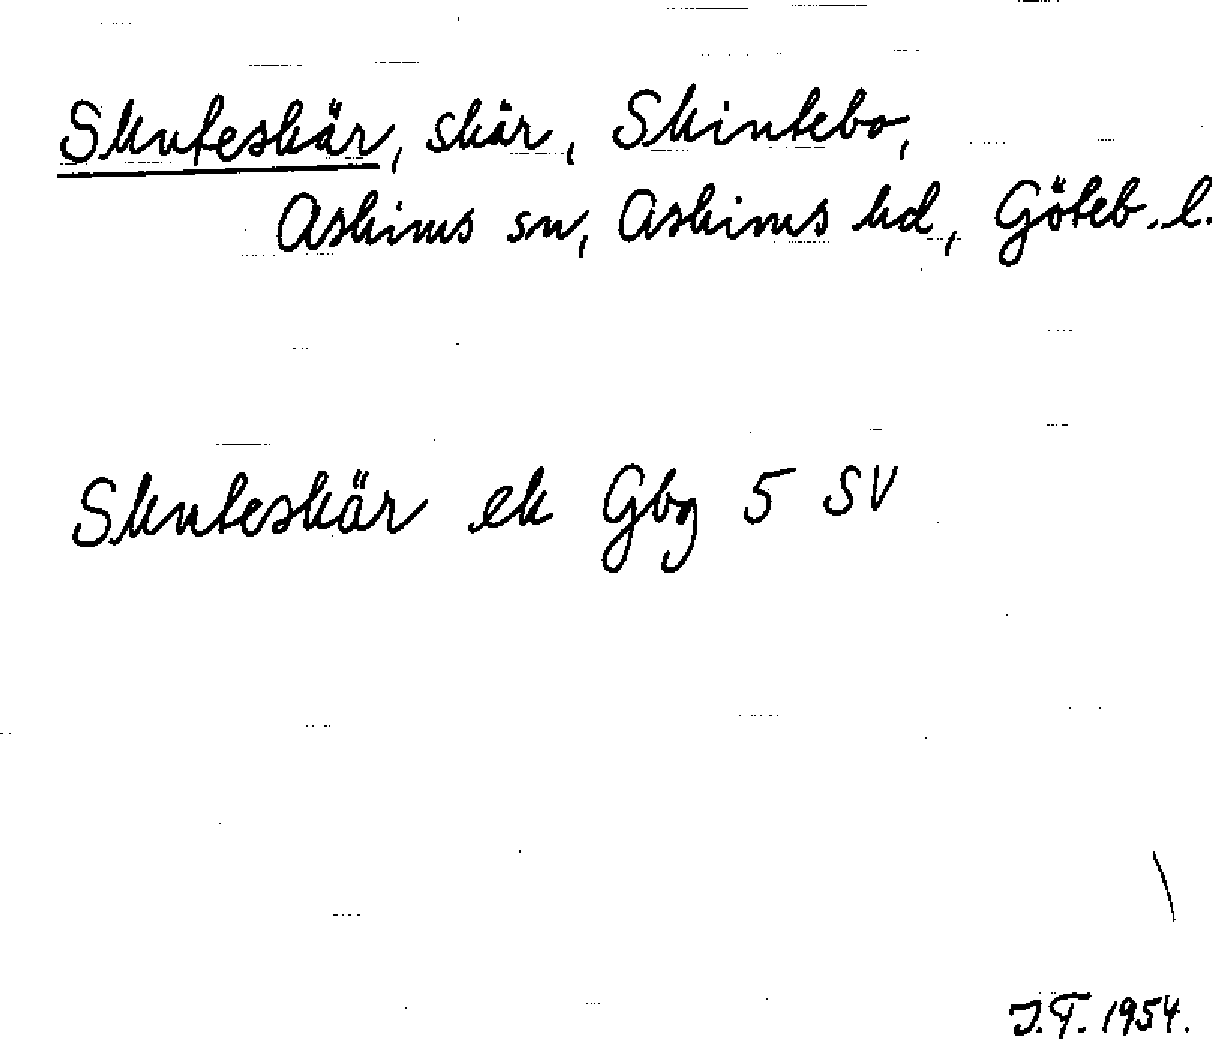 Skuteskär, skär, Skintebo,
Askims sn, Askims hd, Göteb. l.
Skuteskär ek Gbg 5 SV
J.T. 1954.